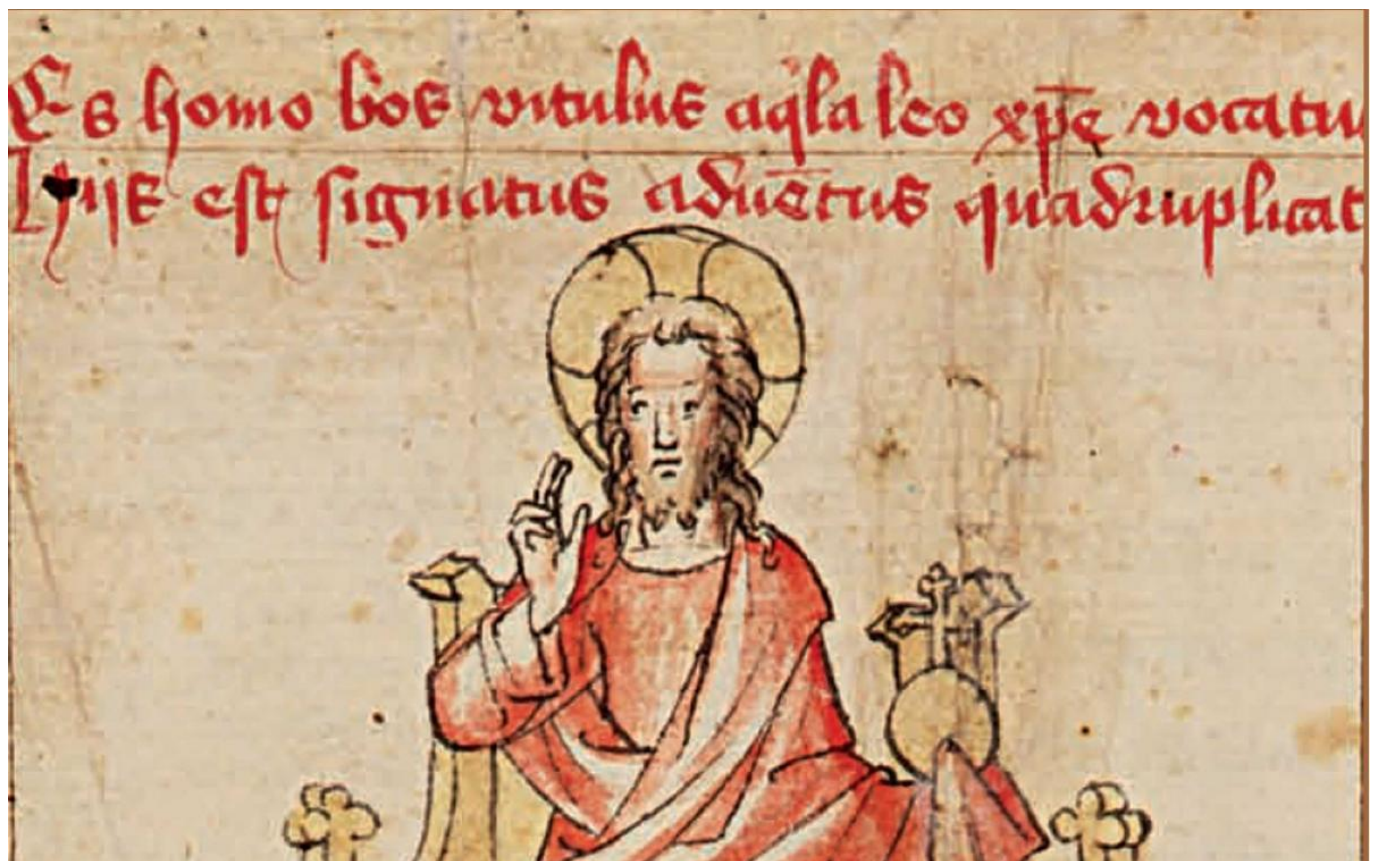 Es homo bos vitulus aq̇la leo xp̄e vocatu
Hijs est signatus aduētus quadruplicat